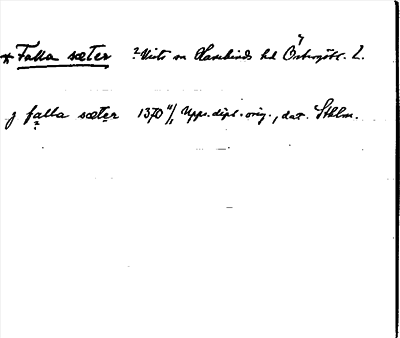 * Falla sæter ? Vists sn Hanekinds hd Östergötl. L.
j falla sæter 1370 4/1 Upps. dipl. orig., dat. Sthlm.